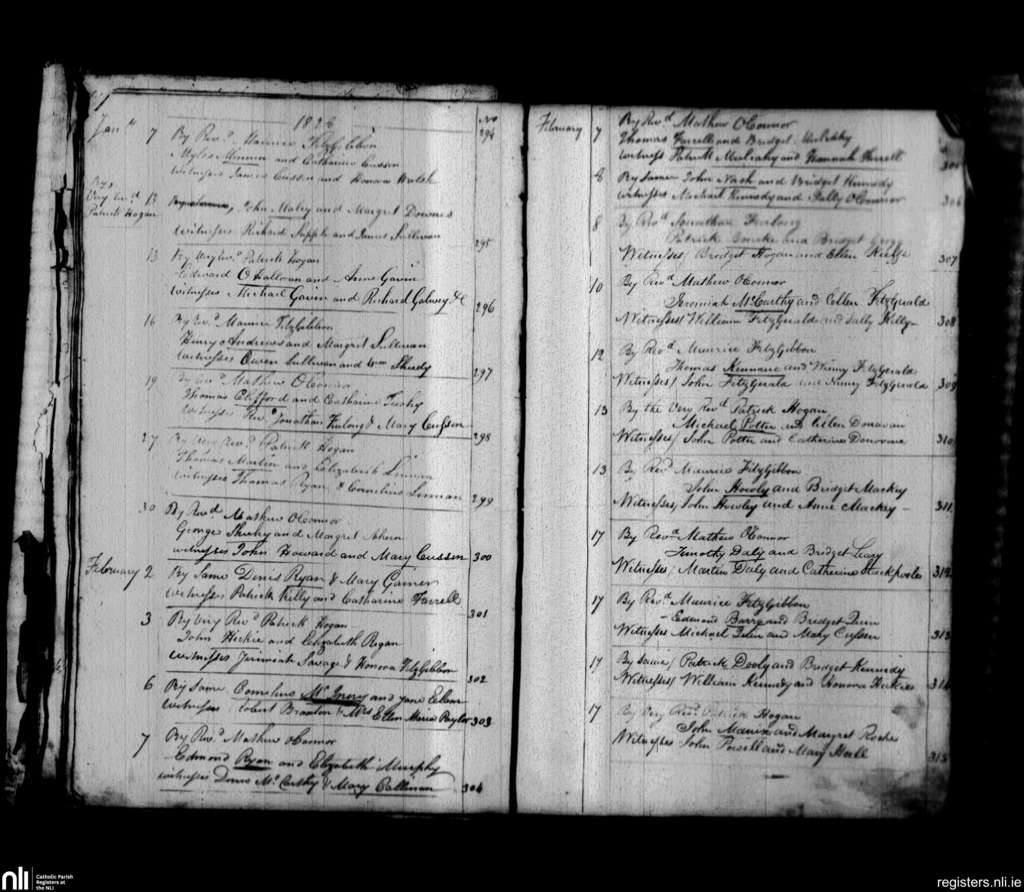 1826
No
Jan.y 7 By Rev.d Maurice FitzGibbon 294
Myles and Catharine Cussen
Witnesses James Cussen and Honora Walsh
By
Very Rev.d
Patrick Hogan
13 John Maley and Margret Downes
Witnesses Richard Supple and James Sullivan 295
13 By Very Rev.d Patrick Hogan
Edward OHalloran and Anne Gavin
Witnesses Michael Gavin and Richard Galwey &c 296
16 By Rev.d Maurice FitzGibbon
Henry Andrews and Margret Sullivan
Witnesses Owen Sullivan and Wm Sheedy 297
19 By Rev.d Mathew OConnor
Thomas Clifford and Catharine
Witnesses Rev.d Jonathan Furlong & Mary Cussen 298
27 By Very Rev.d Patrick Hogan
Thomas Martin and Elizabeth
Witnesses Thomas Ryan & Cornelius 299
30 By Rev.d Mathew OConnor
George Sheehy and Margret Ahern
Witnesses John Howard and Mary Cussen 300
February 2 By Same Denis Ryan & Mary
Witnesses Patrick Kelly and Catharine Farrell 301
3 By Very Rev.d Patrick Hogan
John Hickie and Elizabeth Regan
Witnesses Jeremiah Savage & Honora FitzGibbon 302
6 By Same Cornelius and Jane
Witnesses Robert & Mrs Ellen Maria Taylor 303
7 By Rev.d Mathew OConnor
Edmond Ryan and Elizabeth Murphy
Witnesses Denis McCarthy & Mary Callinan 304
February 7 By Rev.d Mathew OConnor
Thomas Farrell and Bridget Mulcahy
Witness Patrick Mulcahy and Hannah Farrell 305
8 By Same John Nash and Bridget Kennedy
Witnesses Michael Kennedy and Sally OConnor 306
8 By Rev.d Jonathan Furlong
Patrick Bourke and Bridget
Witnesses/ Bridget Hogan and Ellen 307
10 By Rev.d Mathew OConnor
Jeremiah McCarthy and Ellen FitzGerald
Witnesses/ William FitzGerald and Sally Kelly 308
12 By Rev.d Maurice FitzGibbon
Thomas and Winny FitzGerald
Witnesses/ John FitzGerald and Nanny FitzGerald 309
13 By the Very Rev.d Patrick Hogan
Michael Potter and Ellen Donovan
Witnesses/ John Potter and Catherine Donovan 310
13 By Rev.d Maurice FitzGibbon
John Howly and Bridget Mackey
Witnesses/ John Howley and Anne Mackey 311
17 By Rev.d Mathew OConnor
Timothy Daly and Bridget Leary
Witnesses/ Martin Daly and Catherine Stackpoole 312
17 By Rev.d Maurice FitzGibbon
Edmond Barry and Bridget Quin
Witnesses Michael Quin and Mary Cussen 313
17 By Same/ Patrick Dooly and Bridget Kennedy
Witnesses/ William Kennedy and Honora Hickie 314
17 By Very Rev.d Patrick Hogan
John and Margret Roche
Witnesses John Powell and Mary Hall 315
nli Catholic Parish
Registers at
the NLI
registers.nli.ie